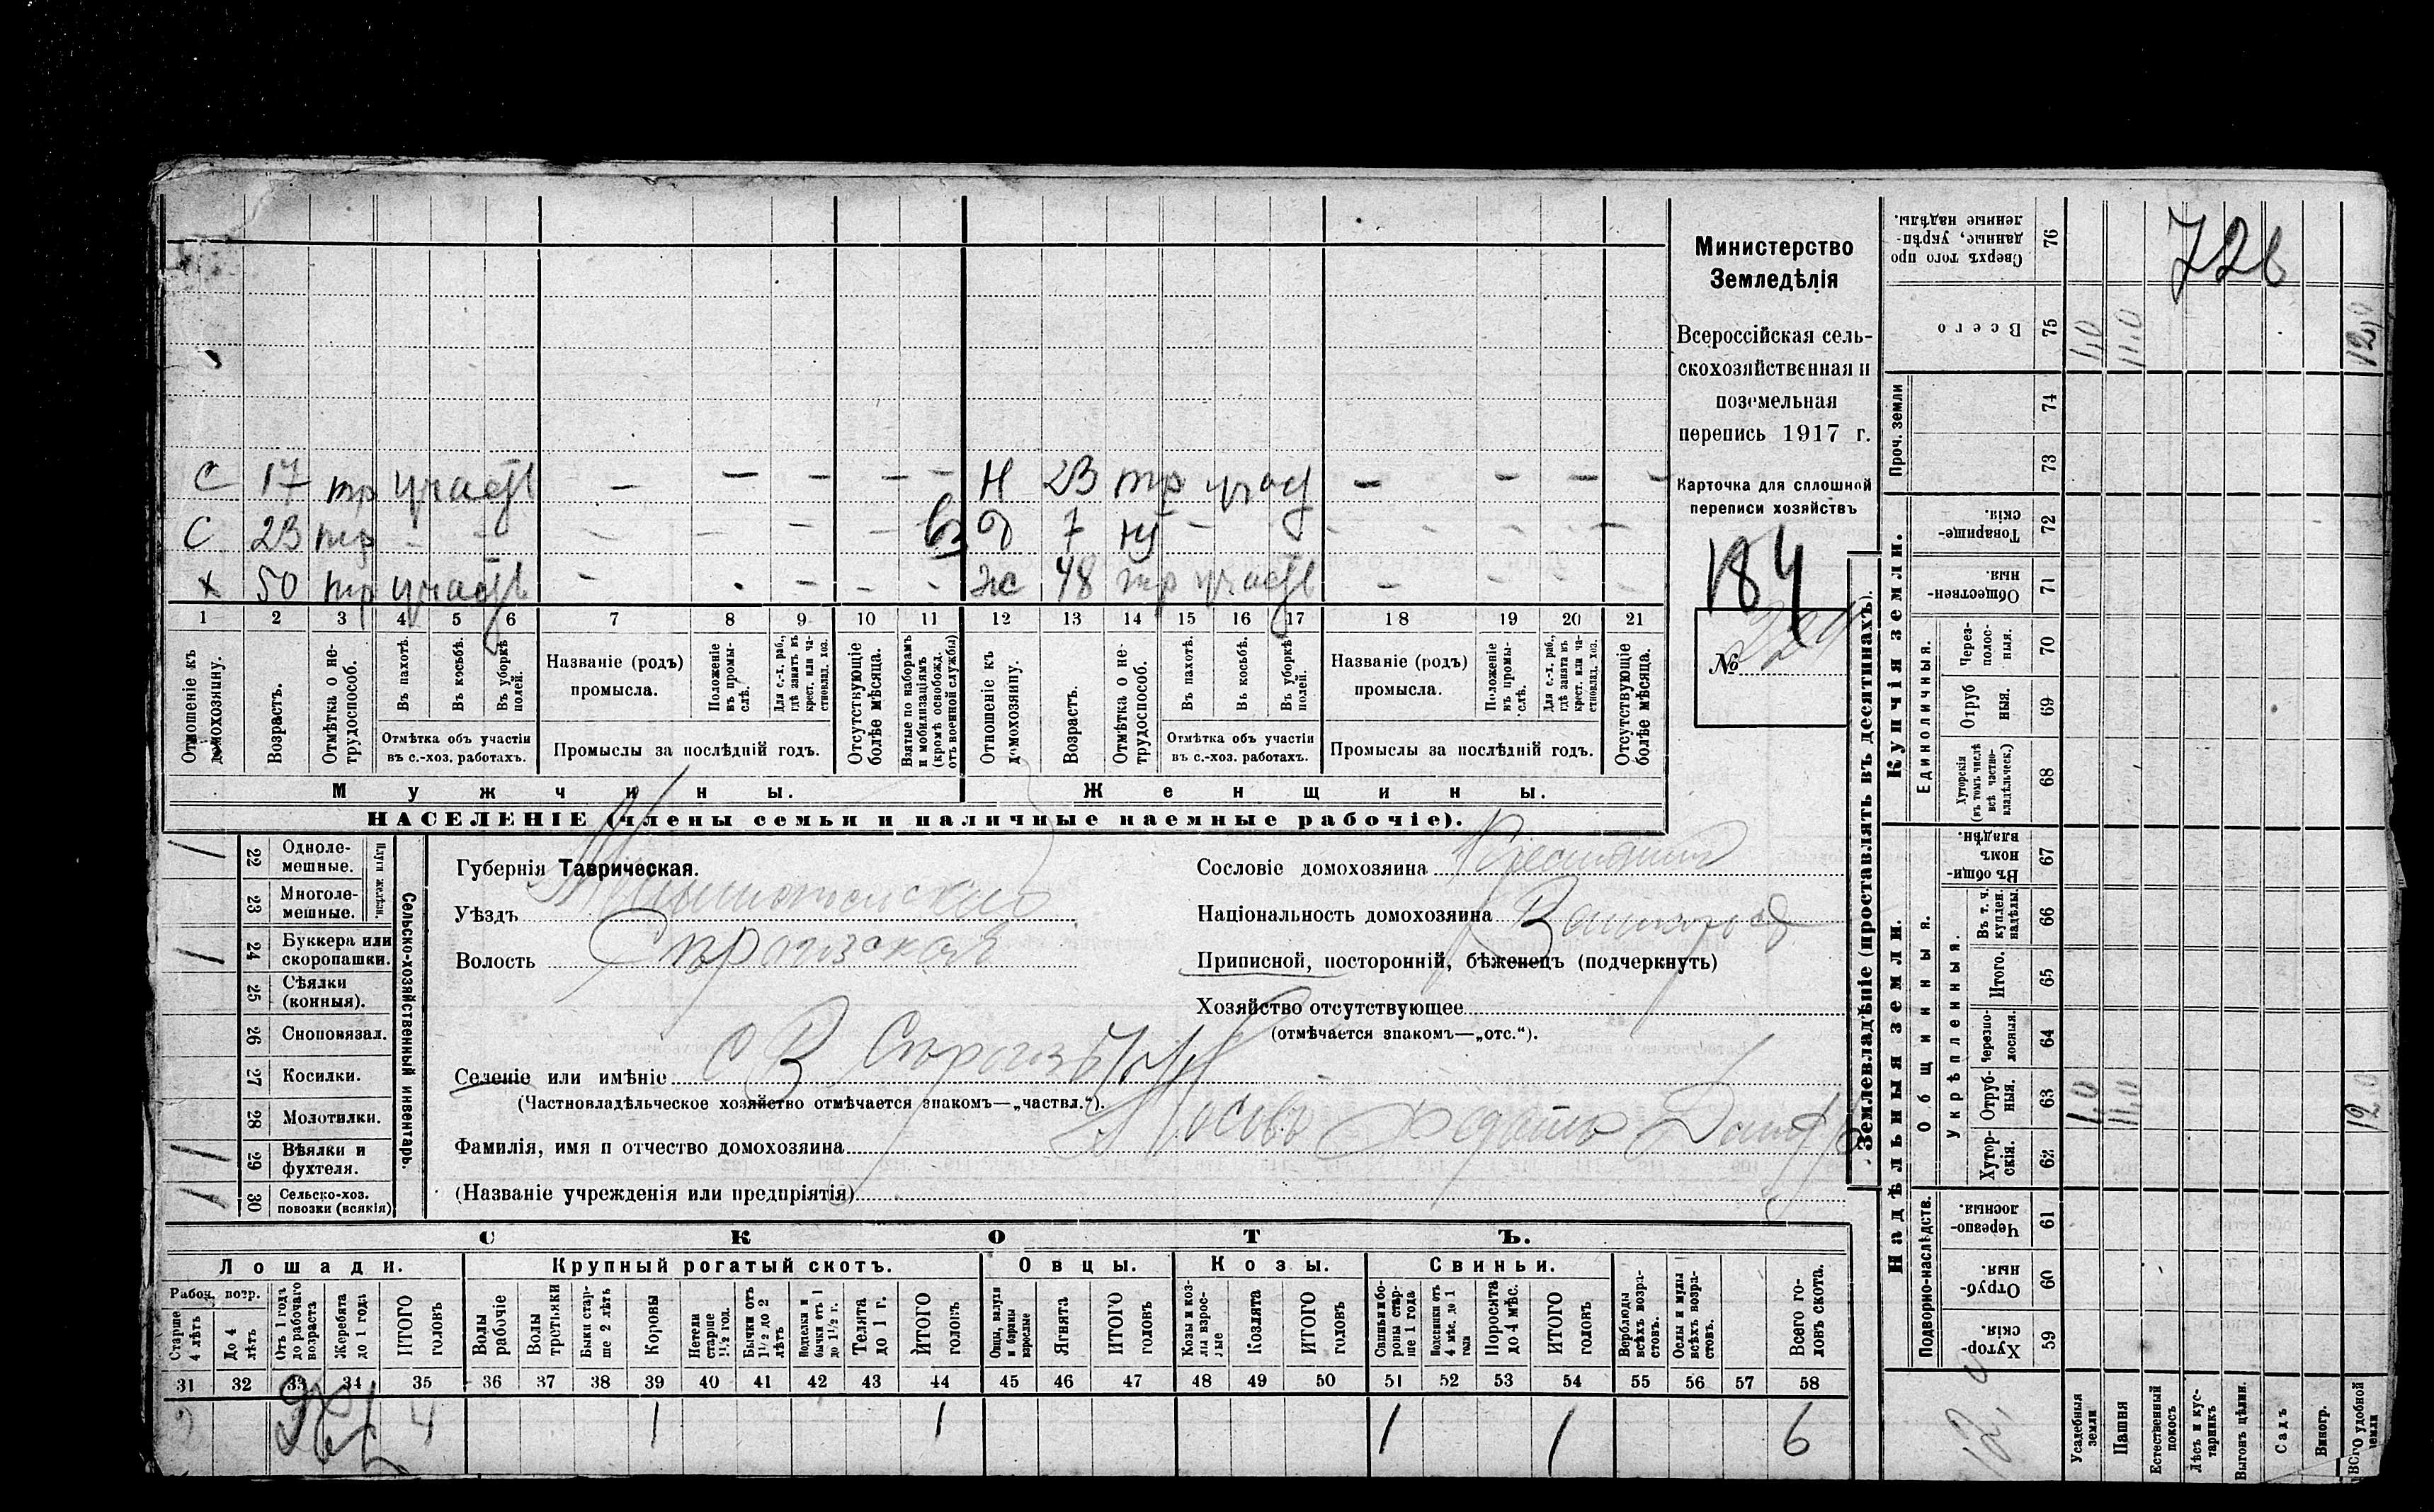 Министерство
Земледѣлія
Всероссійская сель-
скохозяйственная и
поземельная
перепись 1917 г.
Карточка для сплошной
переписи хозяйствъ
184
№
72
С 17 тр участв — — — — — Н 23 тр — — — —
С 23 тр — — — — — — вз д 7 — — — — —
х 50 тр участв — — — — ж 48 тр участв — — — —
1 2 3 4 5 6 7 8 9 10 11 12 13 14 15 16 17 18 19 20 21
Отношеніе къ домохозяину.
Возрастъ.
Отмѣтка о не-трудоспособ.
Въ пахотѣ.
Въ косьбѣ.
Въ уборкѣ полей.
Отмѣтка объ участіи
въ с.-хоз. работахъ.
Названіе (родъ)
промысла.
Положеніе въ промы-слѣ.
Для с.-х. раб., гдѣ занятъ въ крест. или ча-стновлад. хоз.
Промыслы за послѣдній годъ.
Отсутствующіе болѣе мѣсяца.
Взятые по наборамъ и мобилизаціямъ (кромѣ освобожд. отъ военной службы)
Отношеніе къ домохозяину.
Возрастъ.
Отмѣтка о не-трудоспособ.
Въ пахотѣ.
Въ косьбѣ.
Въ уборкѣ полей.
Отмѣтка объ участіи
въ с.-хоз. работахъ.
Названіе (родъ)
промысла.
Положеніе въ промы-слѣ.
Для с.-х. раб., гдѣ занята въ крест. или ча-стновлад. хоз.
Промыслы за послѣдній годъ.
Отсутствующіе болѣе мѣсяца.
Мужчины.
Женщины.
НАСЕЛЕНІЕ (члены семьи и наличные наемные рабочіе).
22 Одноле-мешные.
23 Многоле-мешные.
24 Буккера или скоропашки.
25 Сѣялки (конныя).
26 Сноповязал.
27 Косилки.
28 Молотилки.
29 Вѣялки и фухтеля.
30 Сельско-хоз. повозки (всякія)
Плуги желѣзн.
Сельско-хозяйственный инвентарь.
Губернія Таврическая.
Уѣздъ
Волость
Сословіе домохозяина
Національность домохозяина
Приписной, посторонній, бѣженецъ (подчеркнуть)
Хозяйство отсутствующее
(отмѣчается знакомъ—„отс.“).
Селеніе или имѣніе
(Частновладѣльческое хозяйство отмѣчается знакомъ—„частвл.“).
Фамилія, имя и отчество домохозяина
(Названіе учрежденія или предпріятія)
СКОТЪ.
Лошади.
Крупный рогатый скотъ.
Овцы.
Козы.
Свиньи.
Рабоч. возр.
Старше 4 лѣтъ
До 4 лѣтъ
Отъ 1 года до рабочаго возраста
Жеребята до 1 года
ИТОГО головъ
Волы рабочіе
Волы третьяки
Быки стар-ше 2 лѣтъ
Коровы
Нетели старше 1½ год.
Бычки отъ 1½ до 2 лѣтъ
Подтелки и бычки отъ 1 до 1½ г.
Телята до 1 г.
ИТОГО головъ
Овцы, валухи и бараны взрослые
Ягнята
ИТОГО головъ
Козы и коз-лы взрос-лые
Козлята
ИТОГО головъ
Свиньи и бо-ровы стар-ше 1 года
Подсвинки отъ 4 мѣс. до 1 года
Поросята до 4 мѣс.
ИТОГО головъ
Верблюды всѣхъ возра-стовъ.
Ослы и мулы всѣхъ возра-стовъ.
Всего го-ловъ скота.
31 32 33 34 35 36 37 38 39 40 41 42 43 44 45 46 47 48 49 50 51 52 53 54 55 56 57 58
2 4 1 1 1 1 6
Землевладѣніе (проставлять въ десятинахъ).
Надѣльныя земли.
Купчія земли.
Проч. земли
Подворно-наслѣдств.
Общинныя.
Укрѣпленныя.
Единоличныя.
Хутор-скія. 59
Отруб-ныя. 60
Черезпо-лосныя. 61
Хутор-скія. 62
Отруб-ныя. 63
Черезпо-лосныя. 64
Итого. 65
Въ т. ч. куплен. надѣлы. 66
Въ общи-номъ владѣн. 67
Хуторскія (въ томъ числѣ всѣ частно-владѣльческ.) 68
Отруб ныя. 69
Через-полос-ныя. 70
Обществен-ныя. 71
Товарище-скія. 72
73
74
Всего 75
Сверхъ того про данные, укрѣп-ленные надѣлы. 76
Усадебныя земли 1,0 1,0
Пашня 11,0 11,0
Естественный покосъ
Лѣсъ и кус-тарникъ
Выгонъ цѣлин.
Садъ
Виногр.
ВСЕГО удобной земли 12,0 12,0
12,0